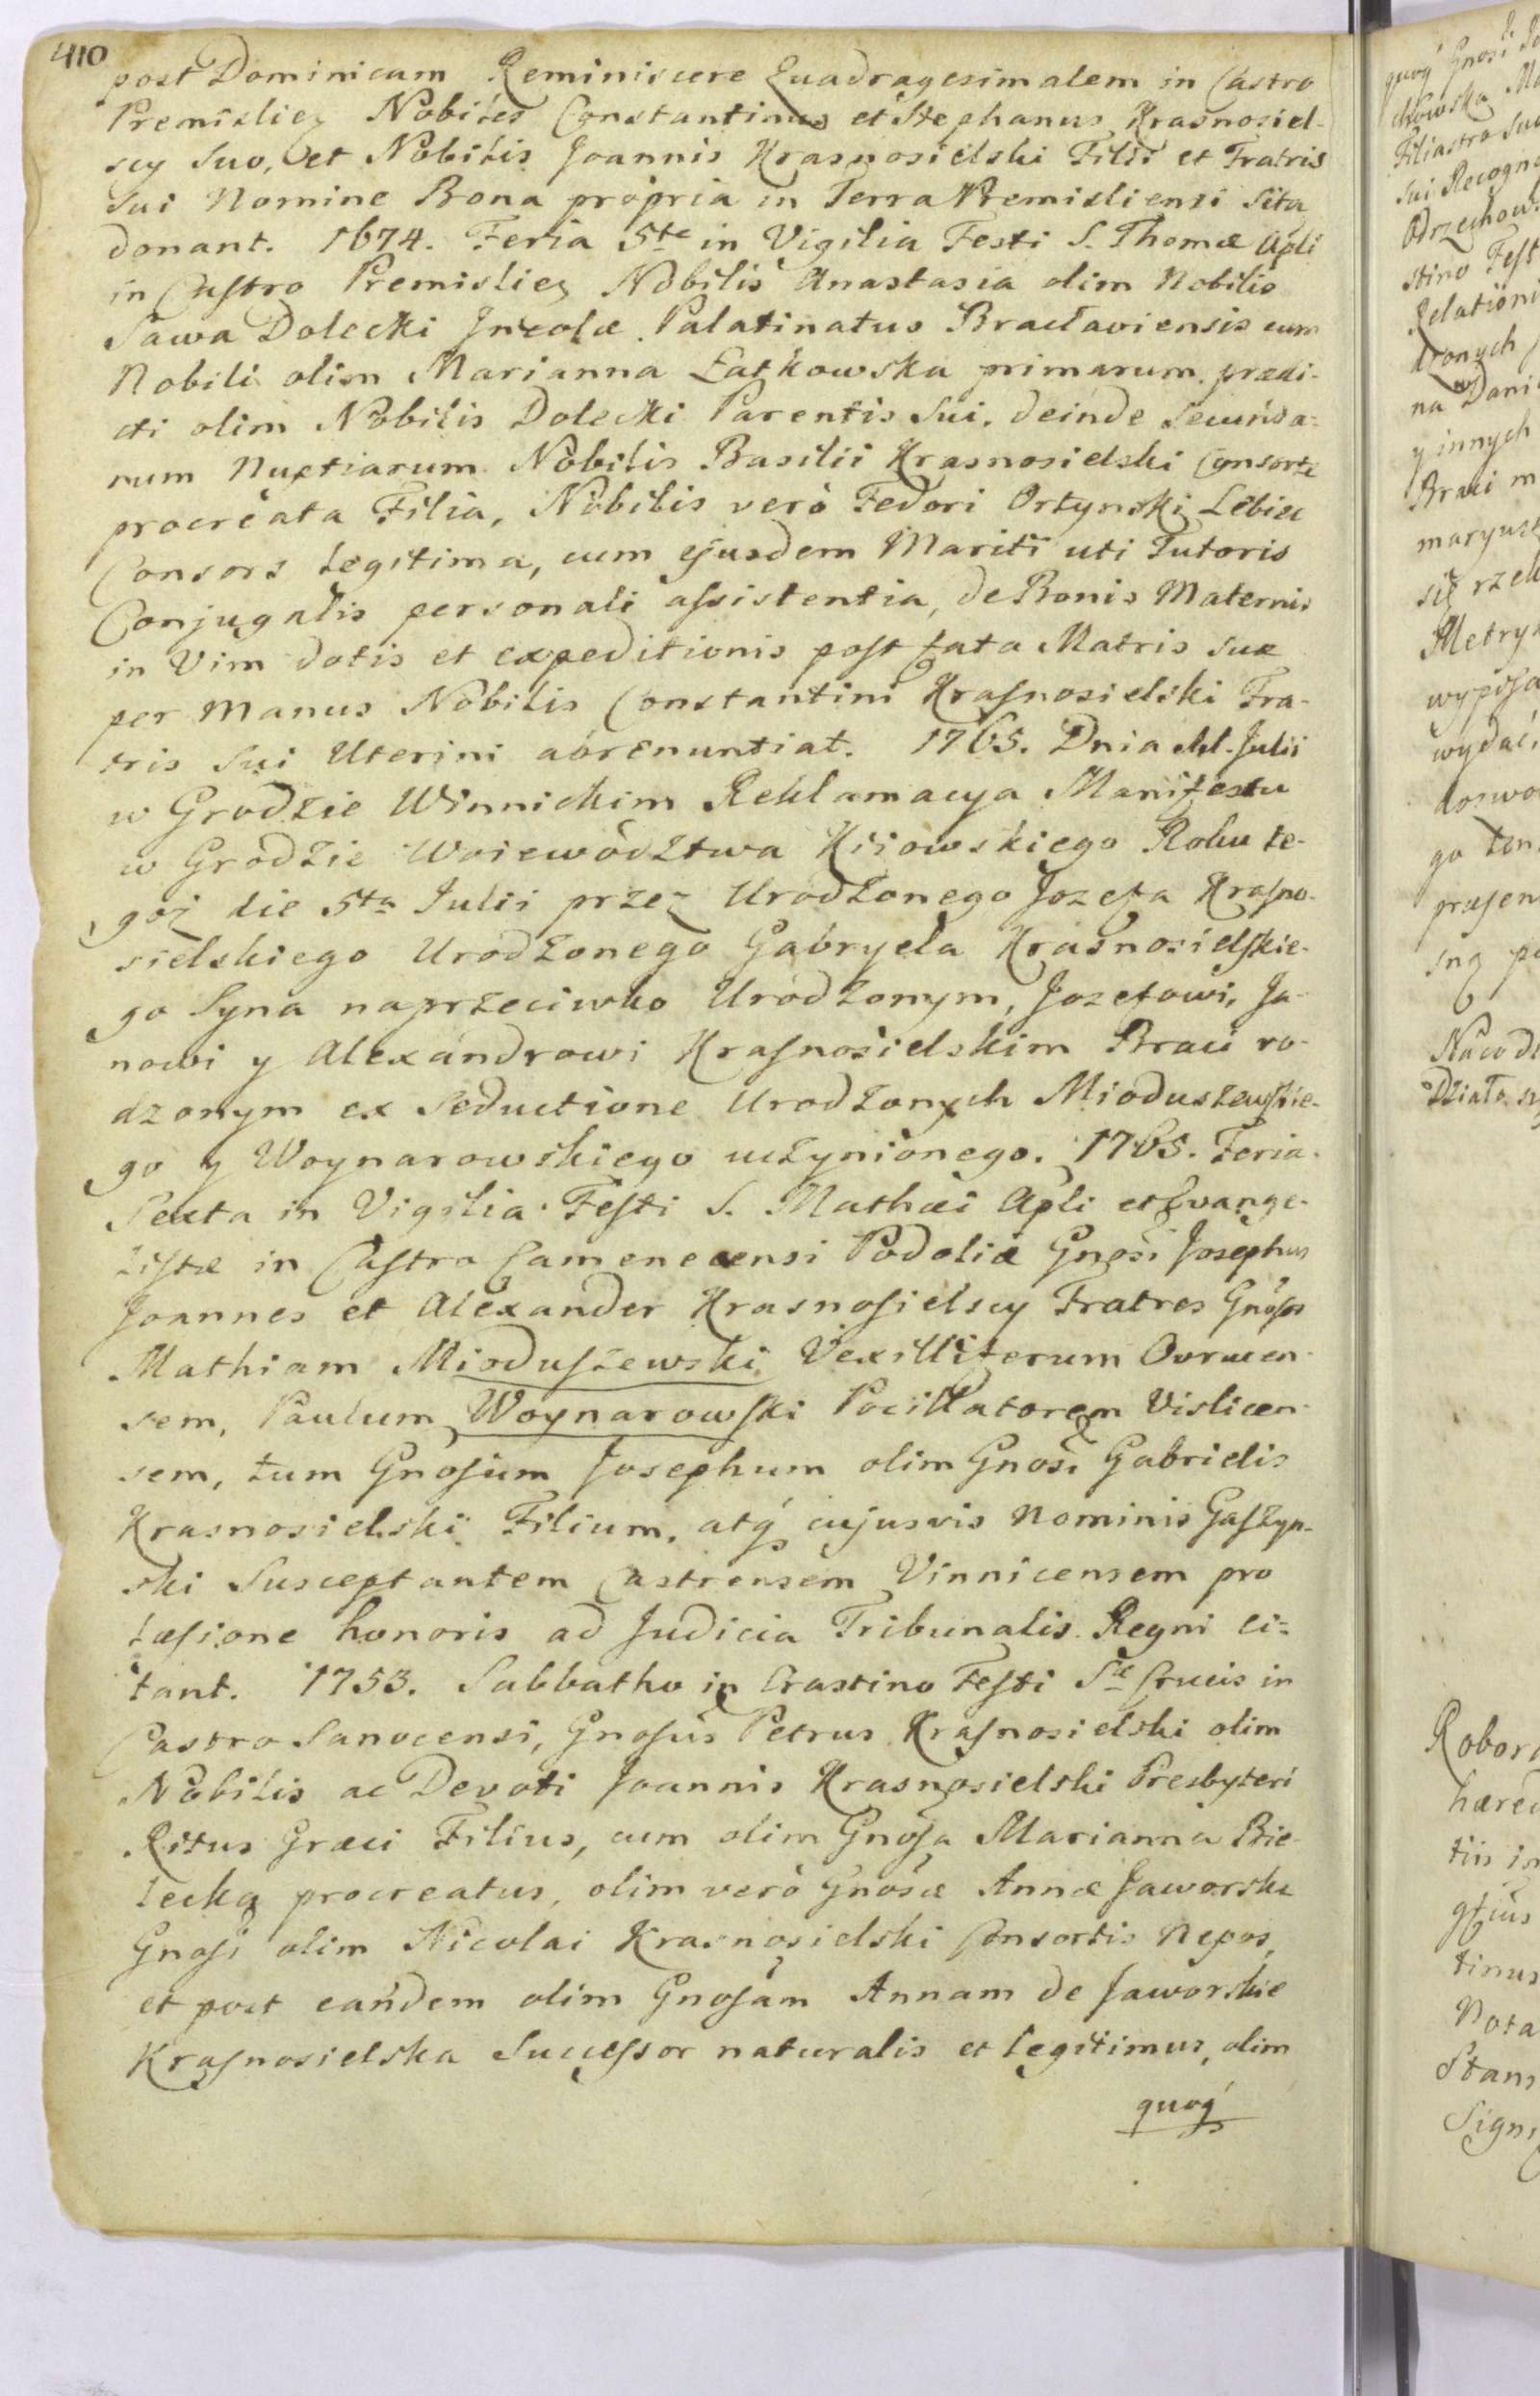 410
post Dominicam Reminiscere Quadragesimalem in Castro
Premisliez Nobiles Constantinus et Stephanus Krasnosiel-
scy Suo, et Nobilis Joannis Krasnosielski Filii et Fratris
Sui Nomine Bona propria in Terra Premisliensi Sita
donant. 1674. Feria 5te in Vigilia Festi S. Thomæ Apli
in Castro Premisliez Nobilis Anastasia olim Nobilis
Sawa Dolecki Incolæ Palatinatus Bracłaviensis cum
Nobili olim Marianna Łatkowska primarum prædi-
cti olim Nobilis Dolecki Parentis Sui, deinde Secunda-
rum Nuptiarum Nobilis Basilii Krasnosielski Consorte
procreata Filia, Nobilis verò Fedori Ortynski Lebiec
Consors Legitima, cum ejusdem Mariti uti Tutoris
Conjugalis personali assistentia, de Bonis Maternis
in Vim dotis et expeditionis post fata Matris suæ
per Manus Nobilis Constantini Krasnosielski Fra-
tris Sui Uterini abrenuntiat. 1765. Dnia Julii
w Grodzie Winnickim Reklamacya Manifestu
w Grodzie Woiewodztwa Kiiowskiego Roku te-
goż die 5ta Julii przez Urodzonego Jozefa Krasno-
sielskiego Urodzonego Gabryela Krasnosielskie-
go Syna naprzeciwko Urodzonym, Jozefowi, Ja-
nowi y Alexandrowi Krasnosielskim Braci ro-
dzonym ex Seductione Urodzonych Mioduszewskie-
go y Woynarowskiego uczynionego. 1765. Feria
Sexta in Vigilia Festi S. Mathæi Apli et Evange-
listæ in Castro Camenecensi Podoliæ Gnosi Josephus
Joannes et Alexander Krasnosielscy Fratres Gnosos
Mathiam Mioduszewski Vexilliferum Ovrucen-
sem, Paulum Woynarowski Pocillatorem Vislicen-
sem, tum Gnosum Josephum olim Gnosi Gabrielis
Krasnosielski Filium, atq cujusvis Nominis Gaszyn-
ski Susceptantem Castrensem Vinnicensem pro
læsione honoris ad Judicia Tribunalis Regni ci-
tant. 1753. Sabbatho in Crastino Festi Sæ Crucis in
Castro Sanocensi, Gnosus Petrus Krasnosielski olim
Nobilis ac Devoti Joannis Krasnosielski Presbyteri
Ritus Græci Filius, cum olim Gnosa Marianna Bie-
lecka procreatus, olim verò Gnosæ Annæ Jaworska
Gnosi olim Nicolai Krasnosielski Consortis Nepos,
et post eandem olim Gnosam Annam de Jaworskie
Krasnosielska Successor naturalis et legitimus, olim
quoq
quoq Gnosi
Filiastro
Sui Recogn
stino Fest
Relationi
na Dani
y innych
Braci m
się rzek
Metry
wydać
go ten
Działo
Robor
hæred
tiis in
tinus
Nota
Stan
Sign